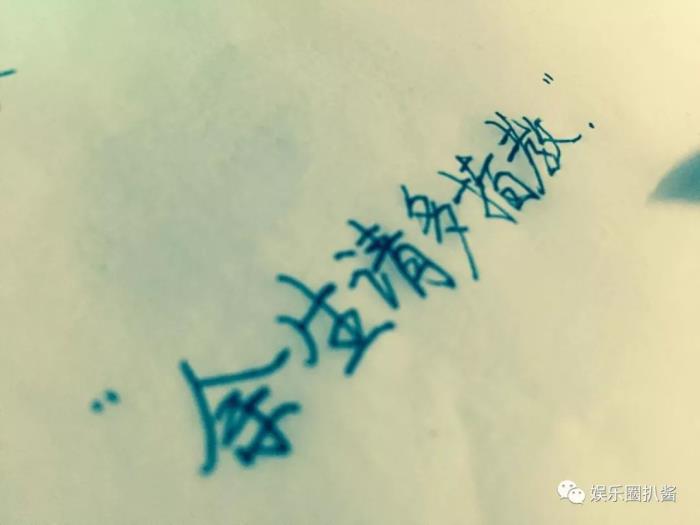 “余生请多指教”.
娱乐圈扒酱